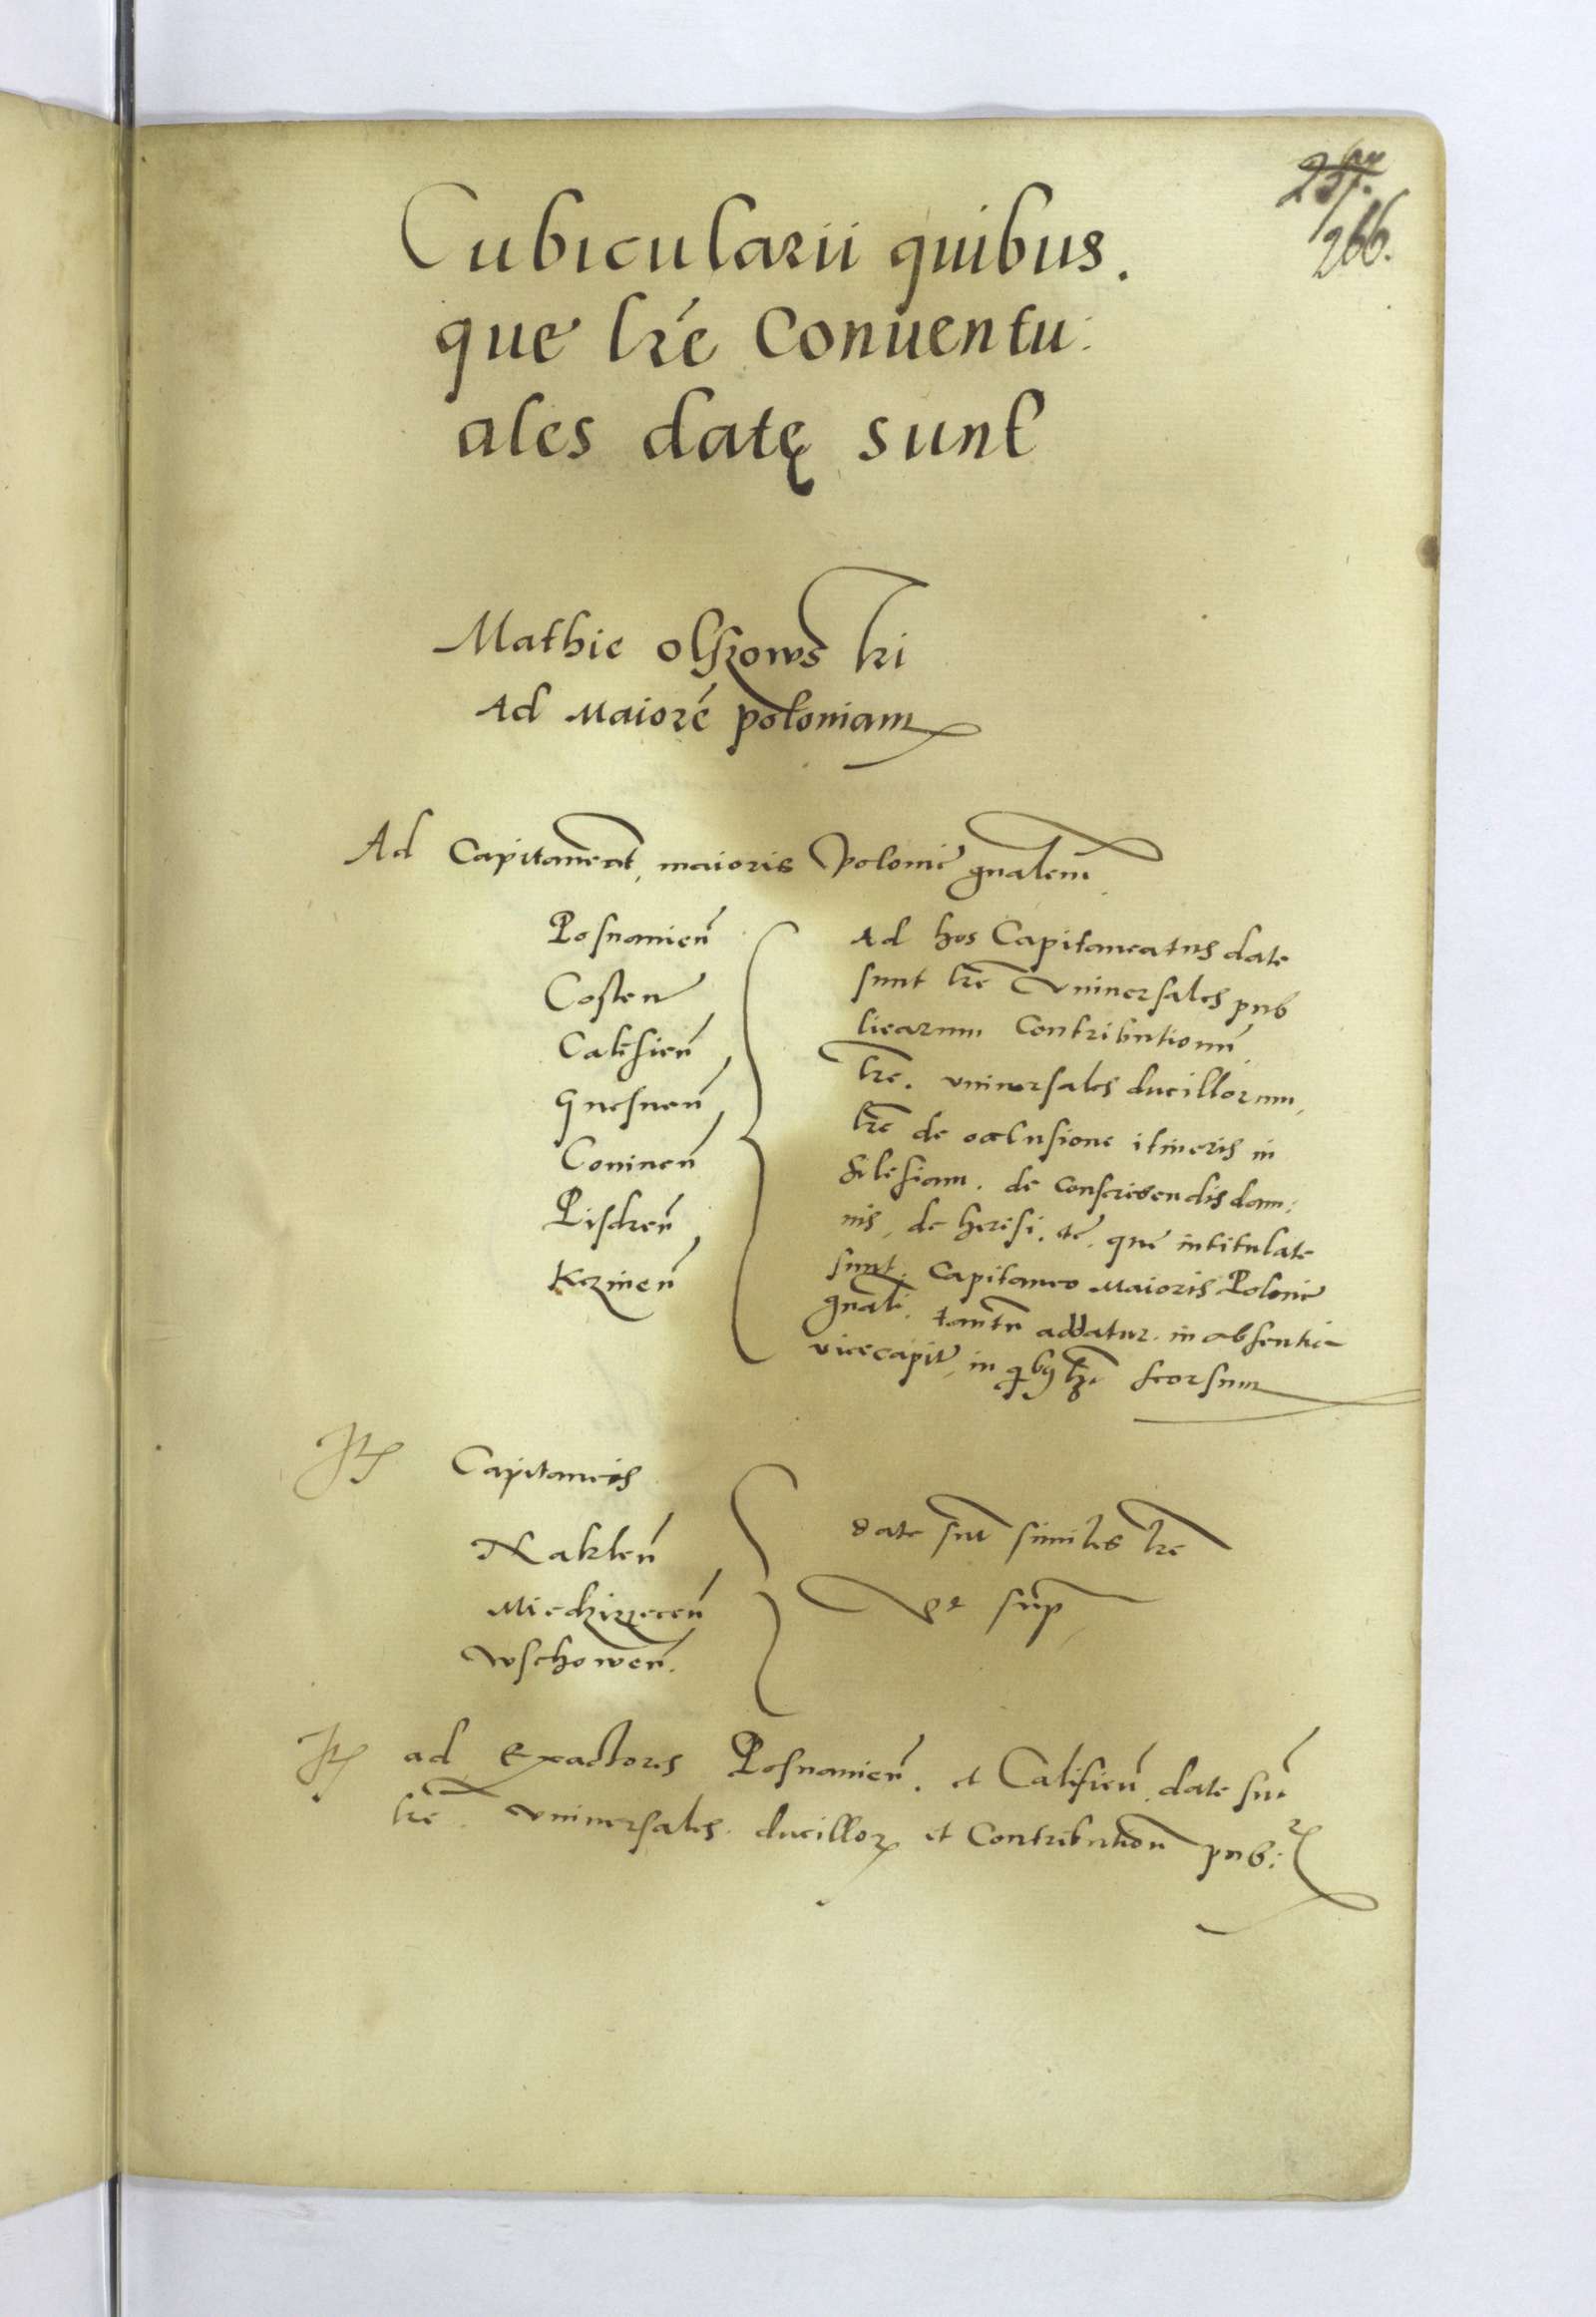 266.
Cubicularii quibus.
que lr̃e Conuentu:
ales datę sunt
Mathie olszows ki
Ad Maiorẽ poloniam
Ad Capitaneat, maioris Polonie gnalem
Posnanieñ
Costeñ
Calisieñ
Gnesneñ
Conineñ
Pisdreñ
Kczineñ
Ad hos Capitaneatus date
sunt lr̃e Vniuersales pub
licarum Contributionũ
lr̃e. vniuersales ducillorum,
lr̃e de oclusione itineris in
Silesiam. de conscribendis dam:
nis, de heresi. etc̃. que intitulate
sunt. Capitaneo Maioris Polonie
gnali. tantũ addatur. in absentia
vicecapit, in qbus seorsum
Itẽ Capitaneis
Nakleñ
Miedzirzeceñ
Wschoweñ.
date sũt similes lr̃e
vt sup̃
Itẽ ad Exactores Posnanieñ. et Calisieñ date sũt
lr̃e. vniuersales. ducilloꝝ et Contributionũ pub: